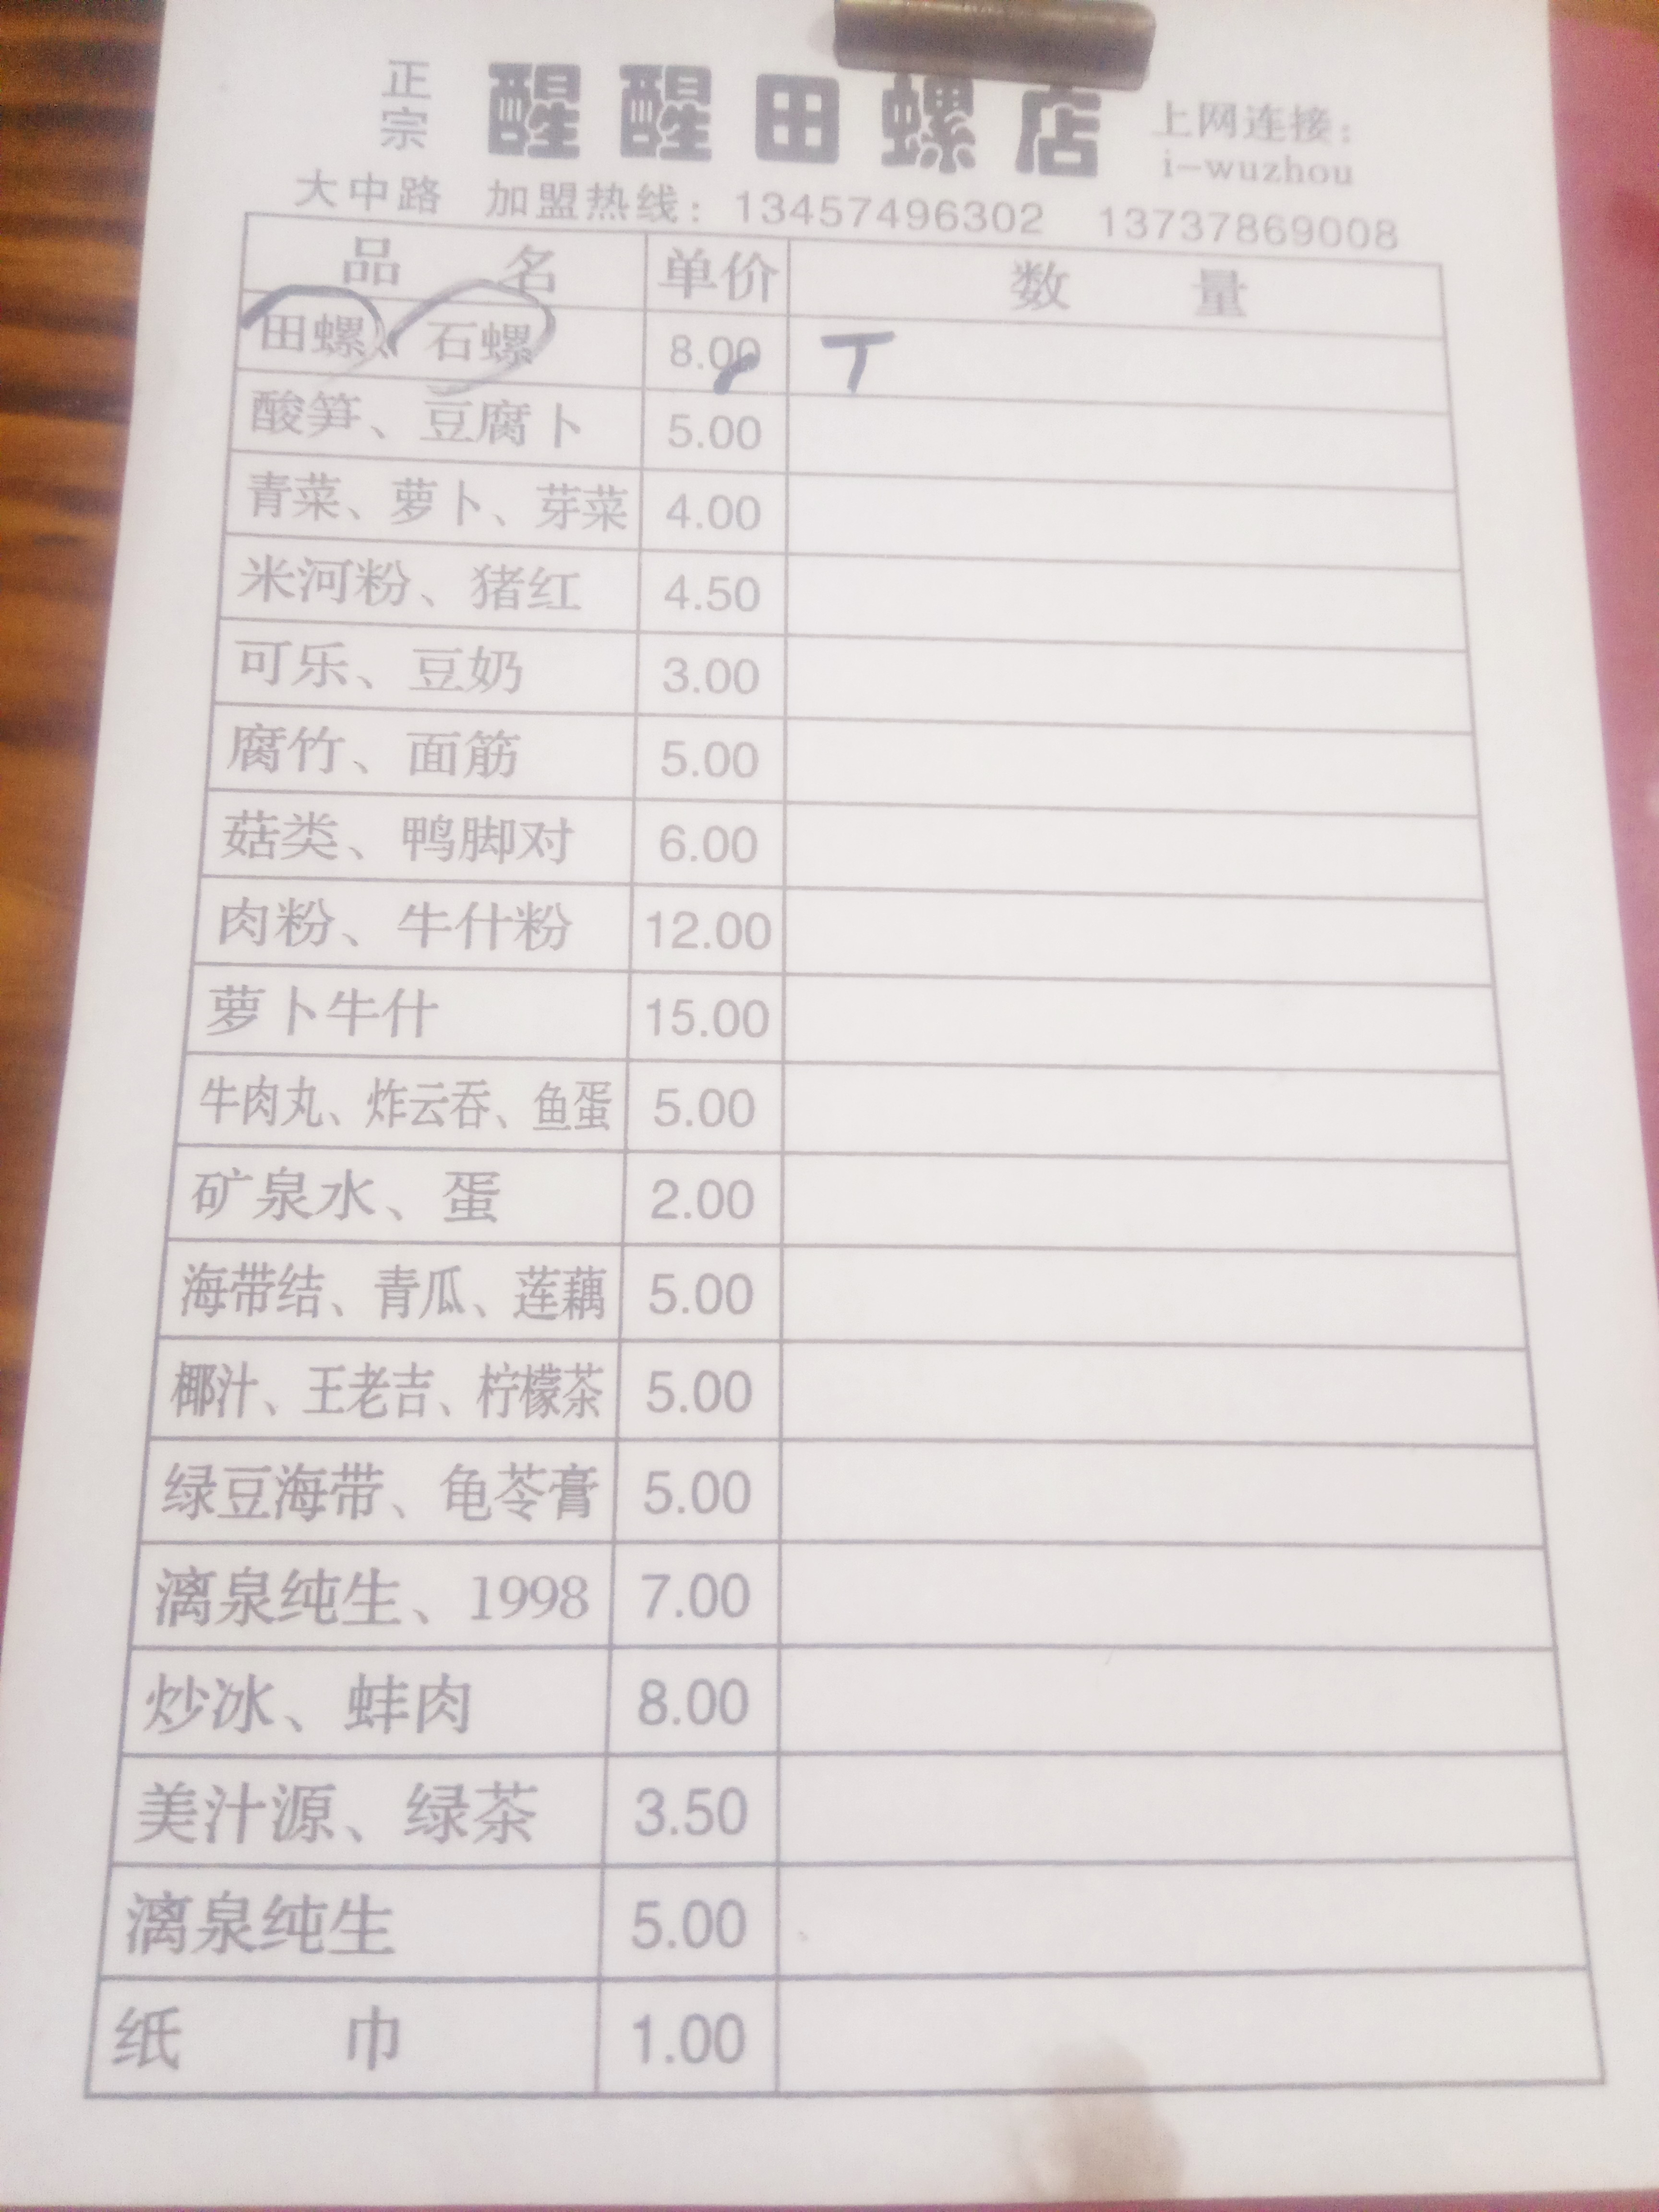 正宗 醒醒田螺店 上网连接：
i-wuzhou
大中路 加盟热线：13457496302 13737869008
品 名 单价 数 量
田螺、石螺 8.00 T
酸笋、豆腐卜 5.00
青菜、萝卜、芽菜 4.00
米河粉、猪红 4.50
可乐、豆奶 3.00
腐竹、面筋 5.00
菇类、鸭脚对 6.00
肉粉、牛什粉 12.00
萝卜牛什 15.00
牛肉丸、炸云吞、鱼蛋 5.00
矿泉水、蛋 2.00
海带结、青瓜、莲藕 5.00
椰汁、王老吉、柠檬茶 5.00
绿豆海带、龟苓膏 5.00
漓泉纯生、1998 7.00
炒冰、蚌肉 8.00
美汁源、绿茶 3.50
漓泉纯生 5.00
纸 巾 1.00